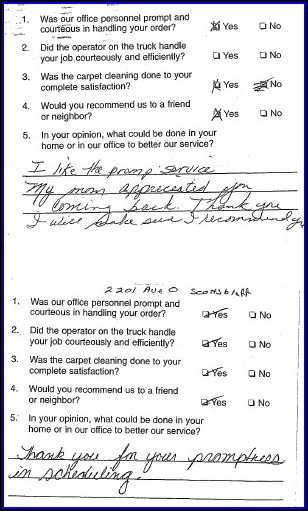 1. Was our office personnel prompt and
courteous in handling your order? Yes No
2. Did the operator on the truck handle
your job courteously and efficiently? Yes No
3. Was the carpet cleaning done to your
complete satisfaction? Yes No
4. Would you recommend us to a friend
or neighbor? Yes No
5. In your opinion, what could be done in your
home or in our office to better our service?
I like the promp service
My mom appreceated you
coming back. Thank you
I will make sure I recommend you
2201 Ave O Scottsbluff
1. Was our office personnel prompt and
courteous in handling your order? Yes No
2. Did the operator on the truck handle
your job courteously and efficiently? Yes No
3. Was the carpet cleaning done to your
complete satisfaction? Yes No
4. Would you recommend us to a friend
or neighbor? Yes No
5. In your opinion, what could be done in your
home or in our office to better our service?
Thank you for your promptness
in scheduling.